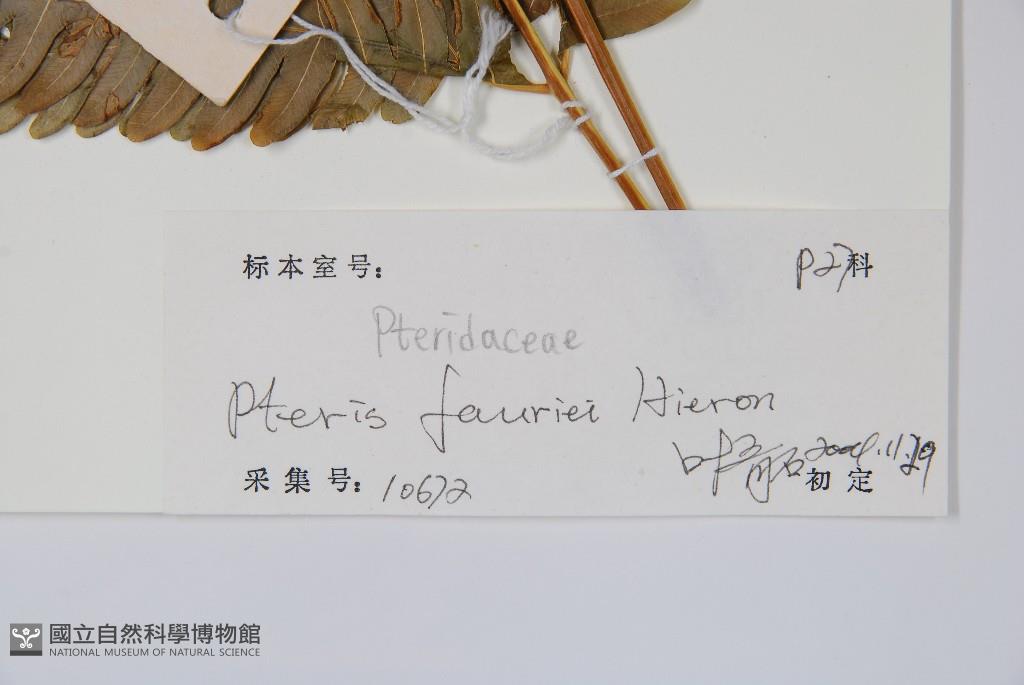 标本室号: P27科
Pteridaceae
Pteris fauriei Hieron
叶 2004.11.29
采集号: 10672 初定
國立自然科學博物館
NATIONAL MUSEUM OF NATURAL SCIENCE